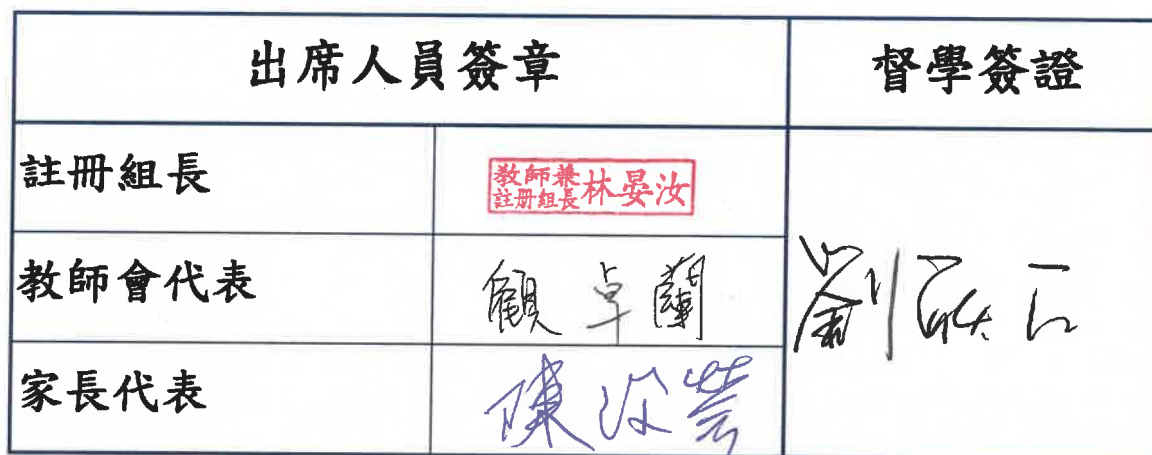 出席人員簽章 督學簽證
註冊組長
教師兼
註冊組長 林晏汝
教師會代表 顧卓蘭
家長代表 陳
劉